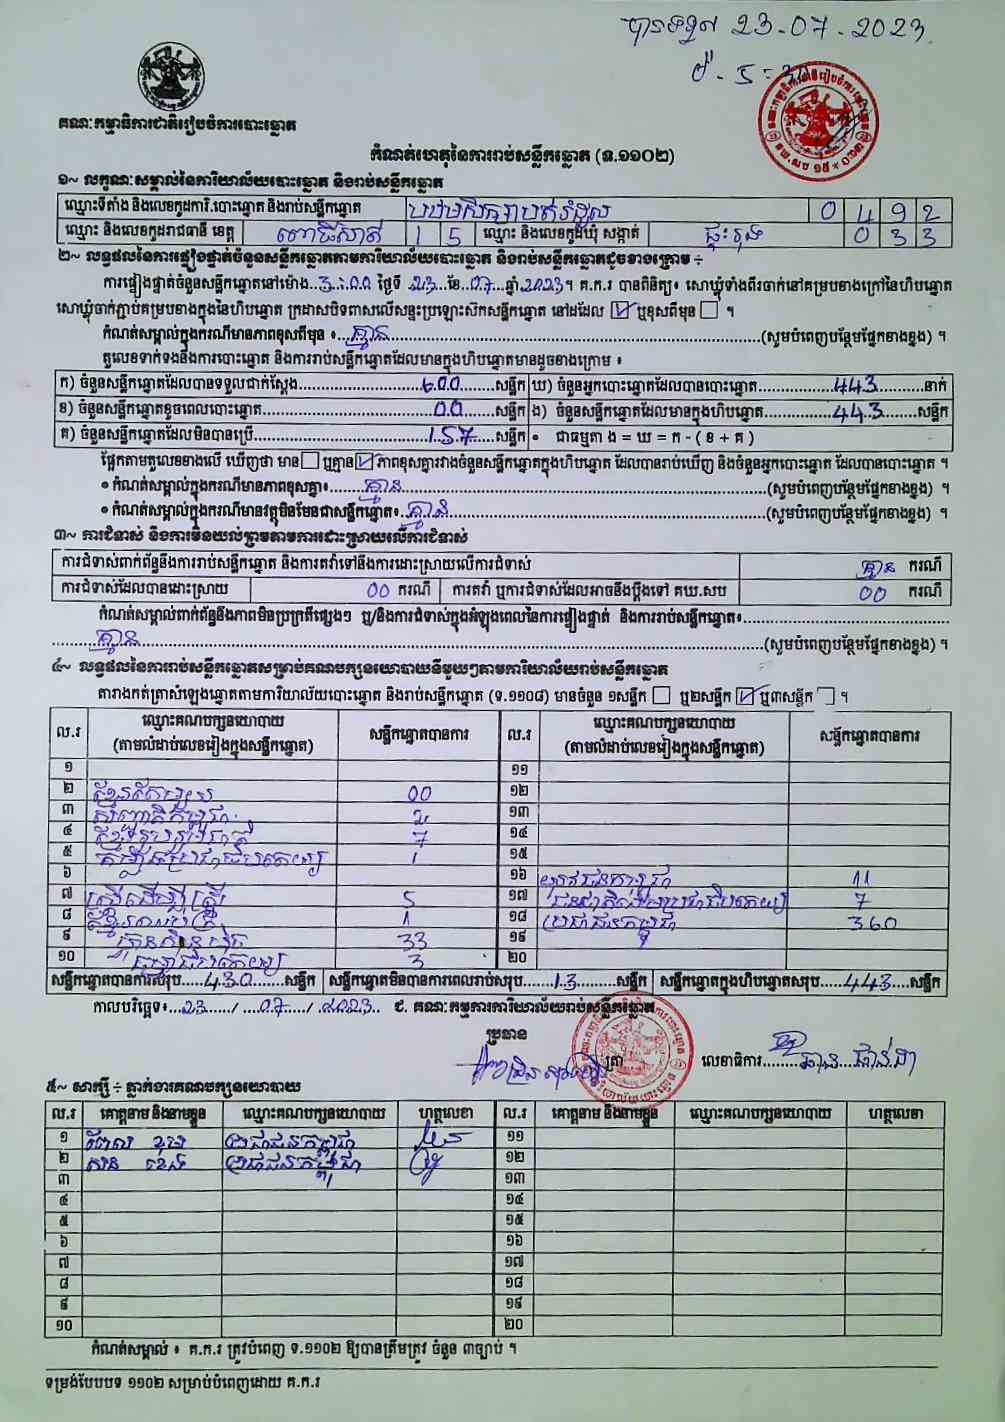 បានទទួល 23-07-2023
ម៉ - 5 - 30
គណៈកម្មាធិការជាតិរៀបចំការបោះឆ្នោត
កំណត់ហេតុនៃការរាប់សន្លឹកឆ្នោត (ទ.១១០២)
១~ លក្ខណៈសម្គាល់នៃការិយាល័យបោះឆ្នោត និងរាប់សន្លឹកឆ្នោត
ឈ្មោះទីតាំង និងលេខកូដការិ.បោះឆ្នោត និងរាប់សន្លឹកឆ្នោត 0 4 9 2
ឈ្មោះ និងលេខកូដរាជធានី ខេត្ត ពោធិ៍សាត់ 1 5 ឈ្មោះ និងលេខកូដឃុំ សង្កាត់ ផ្ទះរុង 0 3 3
២~ លទ្ធផលនៃការផ្ទៀងផ្ទាត់ចំនួនសន្លឹកឆ្នោតតាមការិយាល័យបោះឆ្នោត និងរាប់សន្លឹកឆ្នោតដូចខាងក្រោម ÷
ការផ្ទៀងផ្ទាត់ចំនួនសន្លឹកឆ្នោតនៅម៉ោង..3:00 ថ្ងៃទី 23 ខែ 07 ឆ្នាំ 2023។ គ.ក.រ បានពិនិត្យ៖ សោឃ្លុំទាំងពីរចាក់នៅគម្របខាងក្រៅនៃហិបឆ្នោត
សោឃ្លុំចាក់ភ្ជាប់គម្របខាងក្នុងនៃហិបឆ្នោត ក្រដាសបិទពាសលើសន្ទះប្រឡោះស៊កសន្លឹកឆ្នោត នៅដដែល ☑ ឬខុសពីមុន ☐ ។
កំណត់សម្គាល់ក្នុងករណីមានភាពខុសពីមុន ៖...គ្មាន...(សូមបំពេញបន្ថែមផ្នែកខាងខ្នង) ។
តួលេខទាក់ទងនឹងការបោះឆ្នោត និងការរាប់សន្លឹកឆ្នោតដែលមានក្នុងហិបឆ្នោតមានដូចខាងក្រោម ៖
ក) ចំនួនសន្លឹកឆ្នោតដែលបានទទួលជាក់ស្ដែង...600...សន្លឹក ឃ) ចំនួនអ្នកបោះឆ្នោតដែលបានបោះឆ្នោត...443...នាក់
ខ) ចំនួនសន្លឹកឆ្នោតខូចពេលបោះឆ្នោត...00...សន្លឹក ង) ចំនួនសន្លឹកឆ្នោតដែលមានក្នុងហិបឆ្នោត...443...សន្លឹក
គ) ចំនួនសន្លឹកឆ្នោតដែលមិនបានប្រើ...157...សន្លឹក • ជាធម្មតា ង = ឃ = ក - ( ខ + គ )
ផ្អែកតាមតួលេខខាងលើ ឃើញថា មាន ☐ ឬគ្មាន ☑ ភាពខុសគ្នារវាងចំនួនសន្លឹកឆ្នោតក្នុងហិបឆ្នោត ដែលបានរាប់ឃើញ និងចំនួនអ្នកបោះឆ្នោត ដែលបានបោះឆ្នោត ។
• កំណត់សម្គាល់ក្នុងករណីមានភាពខុសគ្នា៖...គ្មាន...(សូមបំពេញបន្ថែមផ្នែកខាងខ្នង) ។
• កំណត់សម្គាល់ក្នុងករណីមានវត្ថុមិនមែនជាសន្លឹកឆ្នោត៖...គ្មាន...(សូមបំពេញបន្ថែមផ្នែកខាងខ្នង) ។
៣~ ការជំទាស់ និងការមិនយល់ព្រមតាមការដោះស្រាយលើការជំទាស់
ការជំទាស់ពាក់ព័ន្ធនឹងការរាប់សន្លឹកឆ្នោត និងការតវ៉ាទៅនឹងការដោះស្រាយលើការជំទាស់ គ្មាន ករណី
ការជំទាស់ដែលបានដោះស្រាយ 00 ករណី ការតវ៉ា ឬការជំទាស់ដែលអាចនឹងប្ដឹងទៅ គឃ.សប 00 ករណី
កំណត់សម្គាល់ពាក់ព័ន្ធនឹងភាពមិនប្រក្រតីផ្សេងៗ ឬ/និងការជំទាស់ក្នុងអំឡុងពេលនៃការផ្ទៀងផ្ទាត់ និងការរាប់សន្លឹកឆ្នោត៖
...គ្មាន...(សូមបំពេញបន្ថែមផ្នែកខាងខ្នង) ។
៤~ លទ្ធផលនៃការរាប់សន្លឹកឆ្នោតសម្រាប់គណបក្សនយោបាយនីមួយៗតាមការិយាល័យរាប់សន្លឹកឆ្នោត
តារាងកត់ត្រាសំឡេងឆ្នោតតាមការិយាល័យបោះឆ្នោត និងរាប់សន្លឹកឆ្នោត (ទ.១១០៨) មានចំនួន ១សន្លឹក ☐ ឬ២សន្លឹក ☑ ឬ៣សន្លឹក ☐ ។
ល.រ ឈ្មោះគណបក្សនយោបាយ (តាមលំដាប់លេខរៀងក្នុងសន្លឹកឆ្នោត) សន្លឹកឆ្នោតបានការ ល.រ ឈ្មោះគណបក្សនយោបាយ (តាមលំដាប់លេខរៀងក្នុងសន្លឹកឆ្នោត) សន្លឹកឆ្នោតបានការ
១ ១១
២ 00 ១២
៣ 2 ១៣
៤ 7 ១៤
៥ 1 ១៥
៦ ១៦ 11
៧ 5 ១៧ 7
៨ 1 ១៨ ប្រជាជនកម្ពុជា 360
៩ 33 ១៩
១០ 3 ២០
សន្លឹកឆ្នោតបានការសរុប...430...សន្លឹក សន្លឹកឆ្នោតមិនបានការពេលរាប់សរុប...13...សន្លឹក សន្លឹកឆ្នោតក្នុងហិបឆ្នោតសរុប...443...សន្លឹក
កាលបរិច្ឆេទ៖...23.../...07.../...2023.. ជ. គណៈកម្មការការិយាល័យរាប់សន្លឹកឆ្នោត
ប្រធាន
ត្រា លេខាធិការ
៥~ សាក្សី ÷ ភ្នាក់ងារគណបក្សនយោបាយ
ល.រ គោត្តនាម និងនាមខ្លួន ឈ្មោះគណបក្សនយោបាយ ហត្ថលេខា ល.រ គោត្តនាម និងនាមខ្លួន ឈ្មោះគណបក្សនយោបាយ ហត្ថលេខា
១ ប្រជាជនកម្ពុជា ១១
២ ប្រជាជនកម្ពុជា ១២
៣ ១៣
៤ ១៤
៥ ១៥
៦ ១៦
៧ ១៧
៨ ១៨
៩ ១៩
១០ ២០
កំណត់សម្គាល់ ៖ គ.ក.រ ត្រូវបំពេញ ទ.១១០២ ឱ្យបានត្រឹមត្រូវ ចំនួន ៣ច្បាប់ ។
ទម្រង់បែបបទ ១១០២ សម្រាប់បំពេញដោយ គ.ក.រ